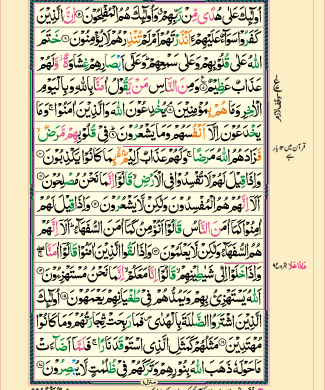 اُولٰٓئِكَ عَلٰى هُدًى مِّنْ رَّبِّهِمْ وَاُولٰٓئِكَ هُمُ الْمُفْلِحُوْنَ اِنَّ الَّذِيْنَ
كَفَرُوْا سَوَآءٌ عَلَيْهِمْ ءَاَنْذَرْتَهُمْ اَمْ لَمْ تُنْذِرْهُمْ لَا يُؤْمِنُوْنَ خَتَمَ
اللّٰهُ عَلٰى قُلُوْبِهِمْ وَعَلٰى سَمْعِهِمْ وَعَلٰٓى اَبْصَارِهِمْ غِشَاوَةٌ وَّلَهُمْ
عَذَابٌ عَظِيْمٌ وَمِنَ النَّاسِ مَنْ يَّقُوْلُ اٰمَنَّا بِاللّٰهِ وَبِالْيَوْمِ
الْاٰخِرِ وَمَا هُمْ بِمُؤْمِنِيْنَ يُخٰدِعُوْنَ اللّٰهَ وَالَّذِيْنَ اٰمَنُوْا وَمَا
يَخْدَعُوْنَ اِلَّآ اَنْفُسَهُمْ وَمَا يَشْعُرُوْنَ فِيْ قُلُوْبِهِمْ مَّرَضٌ
فَزَادَهُمُ اللّٰهُ مَرَضًا وَلَهُمْ عَذَابٌ اَلِيْمٌ بِمَا كَانُوْا يَكْذِبُوْنَ
وَاِذَا قِيْلَ لَهُمْ لَا تُفْسِدُوْا فِي الْاَرْضِ قَالُوْٓا اِنَّمَا نَحْنُ مُصْلِحُوْنَ
اَلَآ اِنَّهُمْ هُمُ الْمُفْسِدُوْنَ وَلٰكِنْ لَّا يَشْعُرُوْنَ وَاِذَا قِيْلَ لَهُمْ
اٰمِنُوْا كَمَآ اٰمَنَ النَّاسُ قَالُوْٓا اَنُؤْمِنُ كَمَآ اٰمَنَ السُّفَهَآءُ اَلَآ اِنَّهُمْ
هُمُ السُّفَهَآءُ وَلٰكِنْ لَّا يَعْلَمُوْنَ وَاِذَا لَقُوا الَّذِيْنَ اٰمَنُوْا قَالُوْٓا اٰمَنَّا
وَاِذَا خَلَوْا اِلٰى شَيٰطِيْنِهِمْ قَالُوْٓا اِنَّا مَعَكُمْ اِنَّمَا نَحْنُ مُسْتَهْزِءُوْنَ
اَللّٰهُ يَسْتَهْزِئُ بِهِمْ وَيَمُدُّهُمْ فِيْ طُغْيَانِهِمْ يَعْمَهُوْنَ اُولٰٓئِكَ
الَّذِيْنَ اشْتَرَوُا الضَّلٰلَةَ بِالْهُدٰى فَمَا رَبِحَتْ تِّجَارَتُهُمْ وَمَا كَانُوْا
مُهْتَدِيْنَ مَثَلُهُمْ كَمَثَلِ الَّذِي اسْتَوْقَدَ نَارًا فَلَمَّآ اَضَآءَتْ
مَا حَوْلَهٗ ذَهَبَ اللّٰهُ بِنُوْرِهِمْ وَتَرَكَهُمْ فِيْ ظُلُمٰتٍ لَّا يُبْصِرُوْنَ